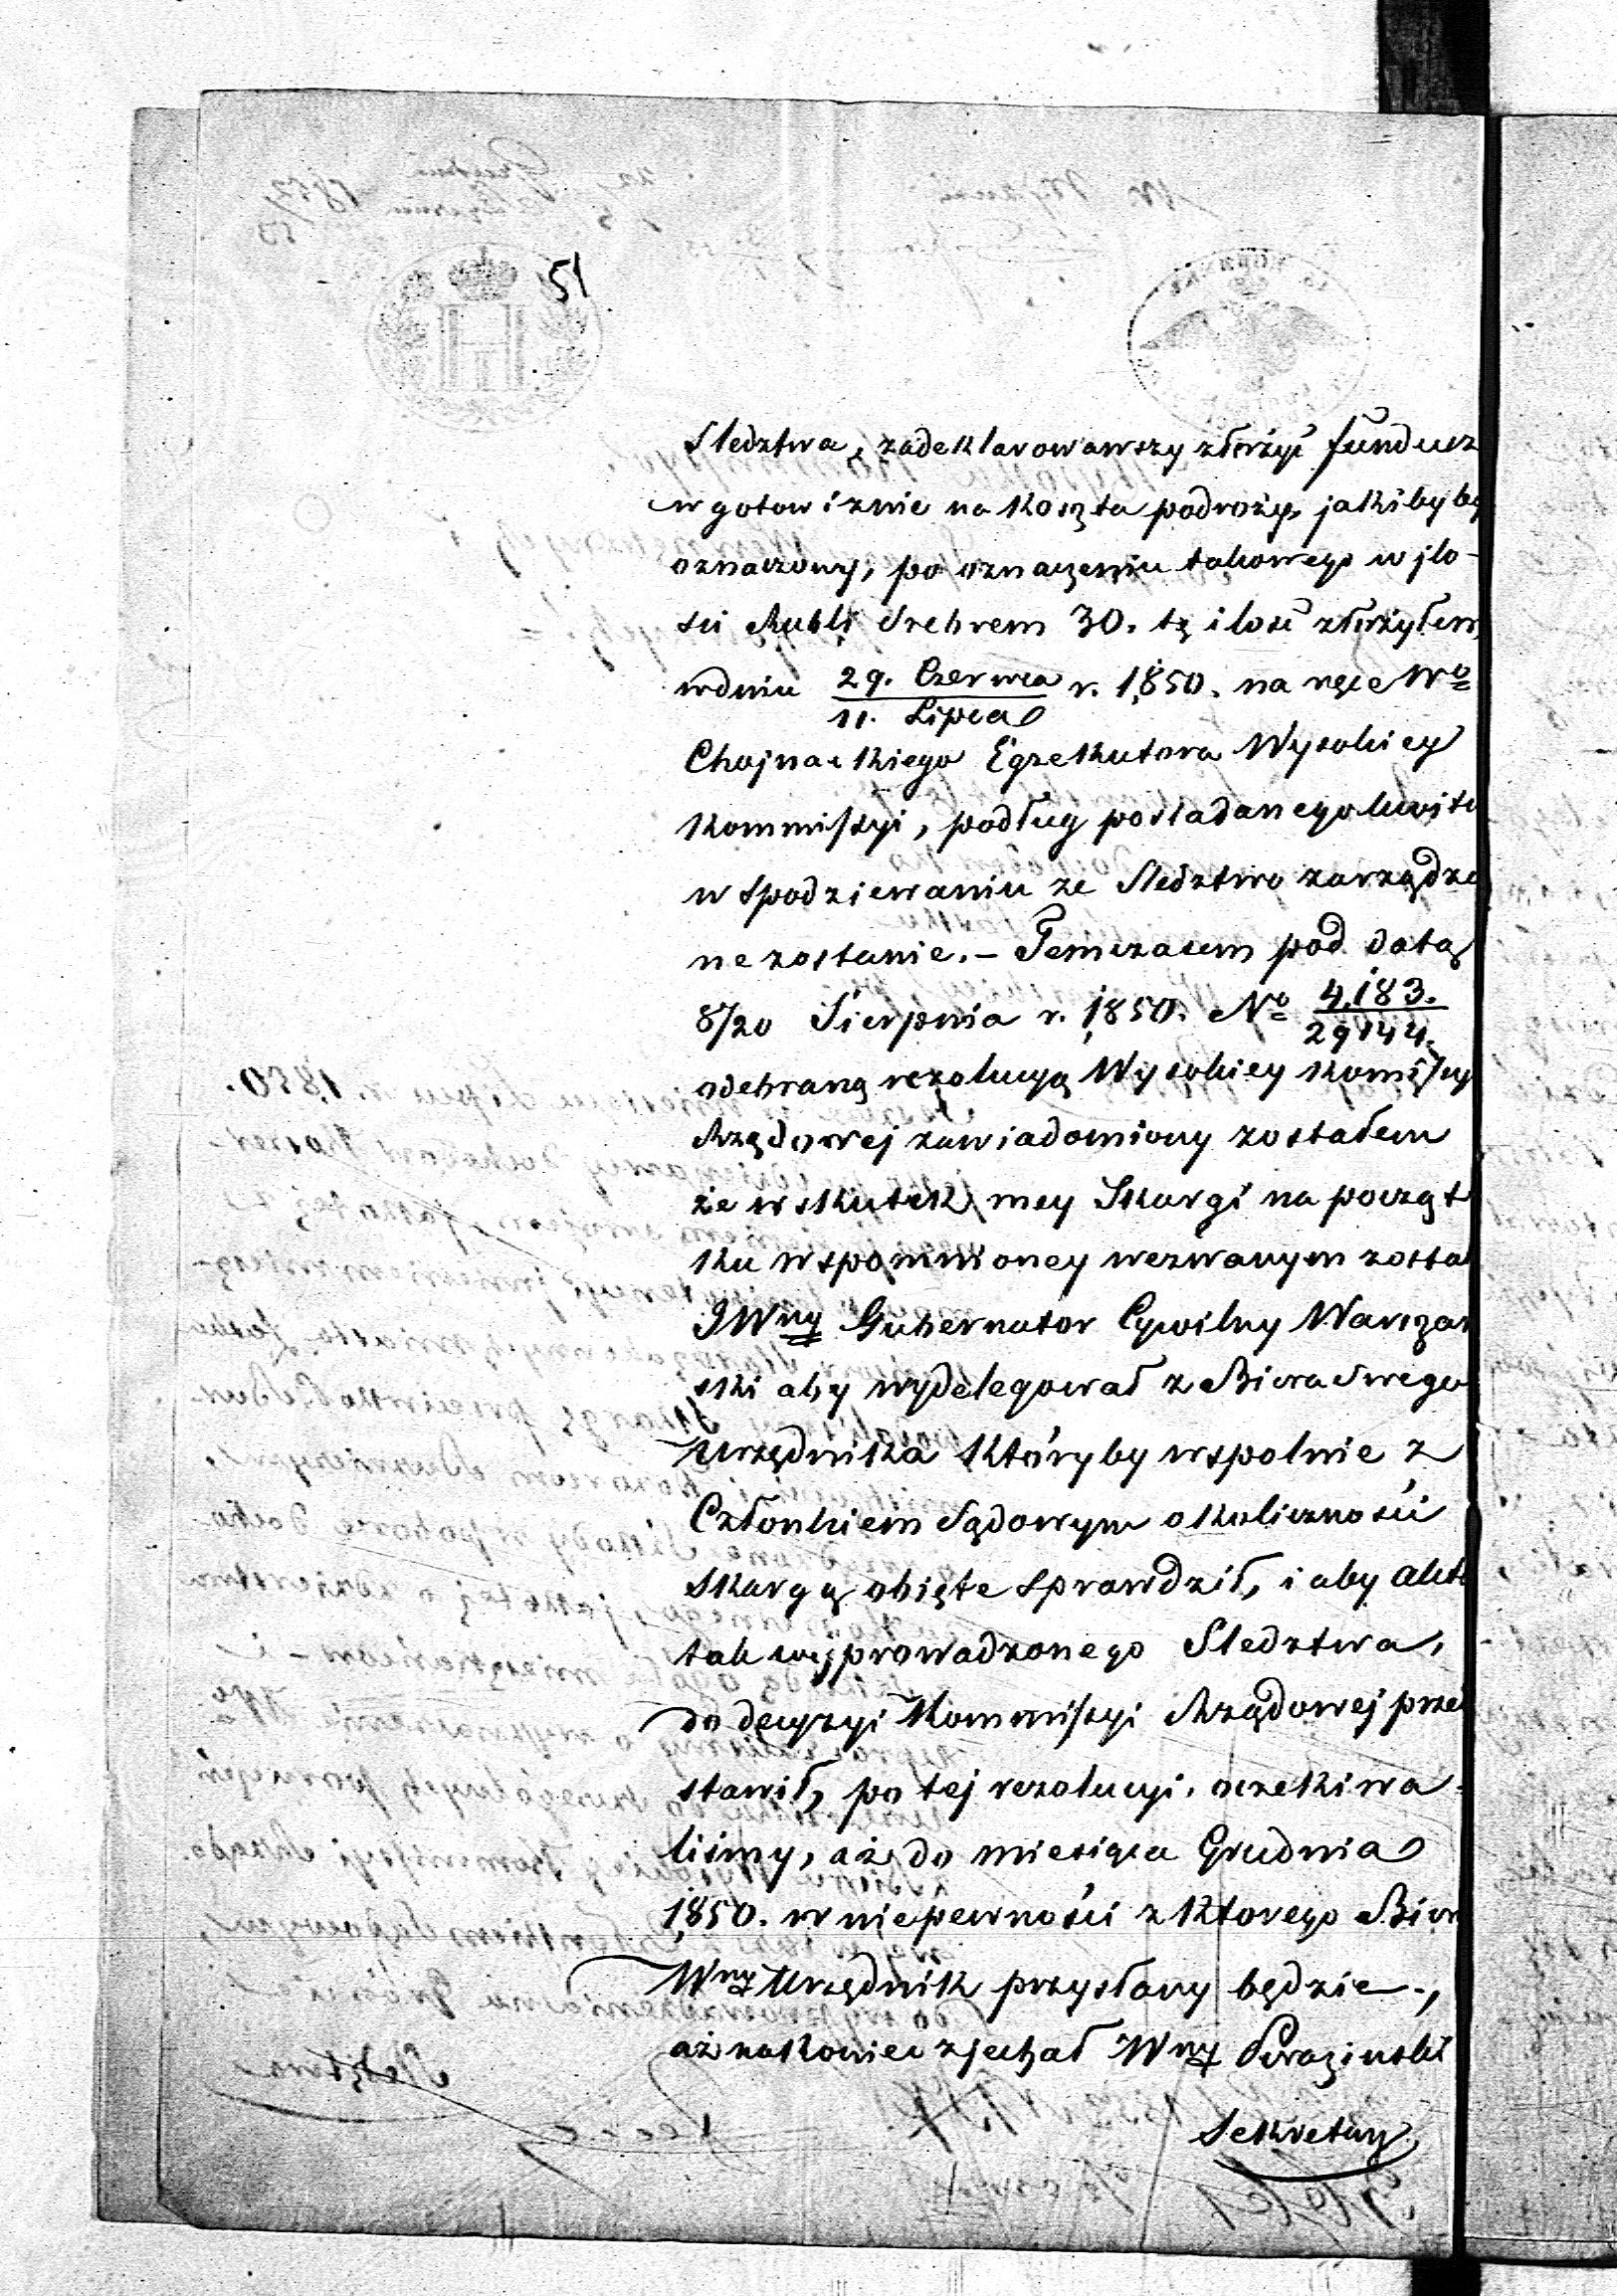 51
Sledztwa, zadeklarowawszy złożyć fundusz
w gotowiznie na koszta podroży, jakiby by
oznaczony, po oznaczeniu takowego w jlo-
sci Rubli Srebrem 30. tę ilosć złożyłem,
w dniu 29. Czerwca / 11. Lipca r. 1850. na ręce Wo
Chojnackiego Egzekutora Wysokiey
Kommissyi, podług posiadanego kwitu
w spodziewaniu ze Sledztwo zarządzo
ne zostanie. – Temczasem pod datą
8/20 Sierpnia r. 1850. No 4,183. / 29144.
odebraną rezolucyą Wysokiey Komissyi
Rządowej zawiadomiony zostałem
że w skutek mey Skargi na począt
ku wspomnioney wezwanym został
JWny Gubernator Cywilny Warszaw
ski aby wydelegował z Biura Swego
Urzędnika któryby wspolnie z
Członkiem Sądowym okoliczności
Skargą obięte sprawdził, i aby akta
tak wyprowadzonego Sledztwa,
do decyzyi Kommissyi Rządowej przed
stawił, po tej rezolucyi, oczekiwa-
liśmy, aż do miesiąca Grudnia
1850. w niepewności z ktorego Biura
Wny Urzędnik przysłany będzie.,
aż nakoniec zjechał Wny
Sekretarz